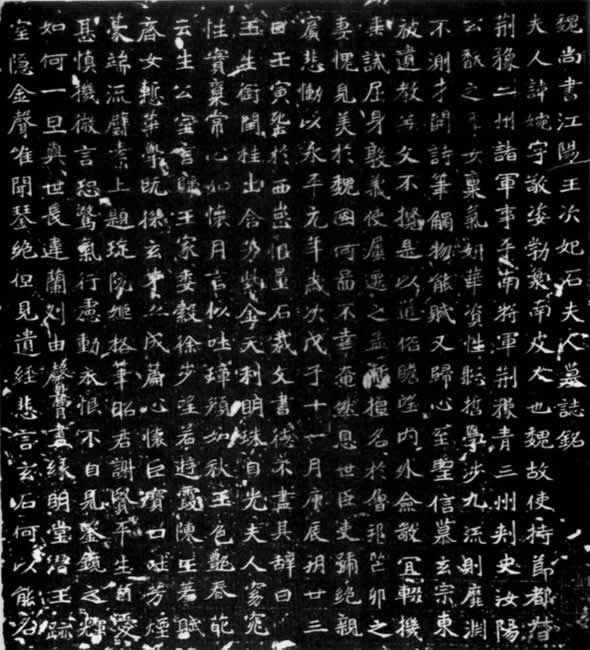 魏尚書江陽王次妃石夫人墓誌銘
夫人諱婉字敬姿勃海南皮人也魏故使持節都督
荊豫二州諸軍事平南將軍荊豫青三州刺史汝陽
公馥之季女稟氣妍華資性聰哲學涉九流則靡淵
不測才關詩筆觸物能賦又歸心至聖信慕玄宗東
被遺教無文不攬是以道俗瞻望內外僉敬宜輟機
誠屈身毀義使遠之孟擅名於魯邦芒卯之
妻愧見美於魏國何啚不幸奄然息世臣吏痛絕親
賓悲慟以永平元年歲次戊子十一月庚辰朔廿三
日壬寅塟於西崗恨星石裁文書德不盡其辭曰
玉生銜閏桂出含芳今天利明珠自光夫人窈窕
性實稟常心如懷月言似吐璋頻如秋玉色艷春葩
云生公室言歸王家委縠徐步望若遊霞陳王羞賦
齊女慙華既操玄筆成篇心懷巨寶口吐芳煙
豪端流璧素上題琁阮姬格筆昭君謝賢平生所愛
甚慎機微言恐驚氣行慮動衣恨不自見鑒鏡之輝
如何一旦與世長違蘭刈由馨膏盡緣明堂潛玉跡
室隱金聲唯聞琴絕但見遺經悲言玄石何以能名